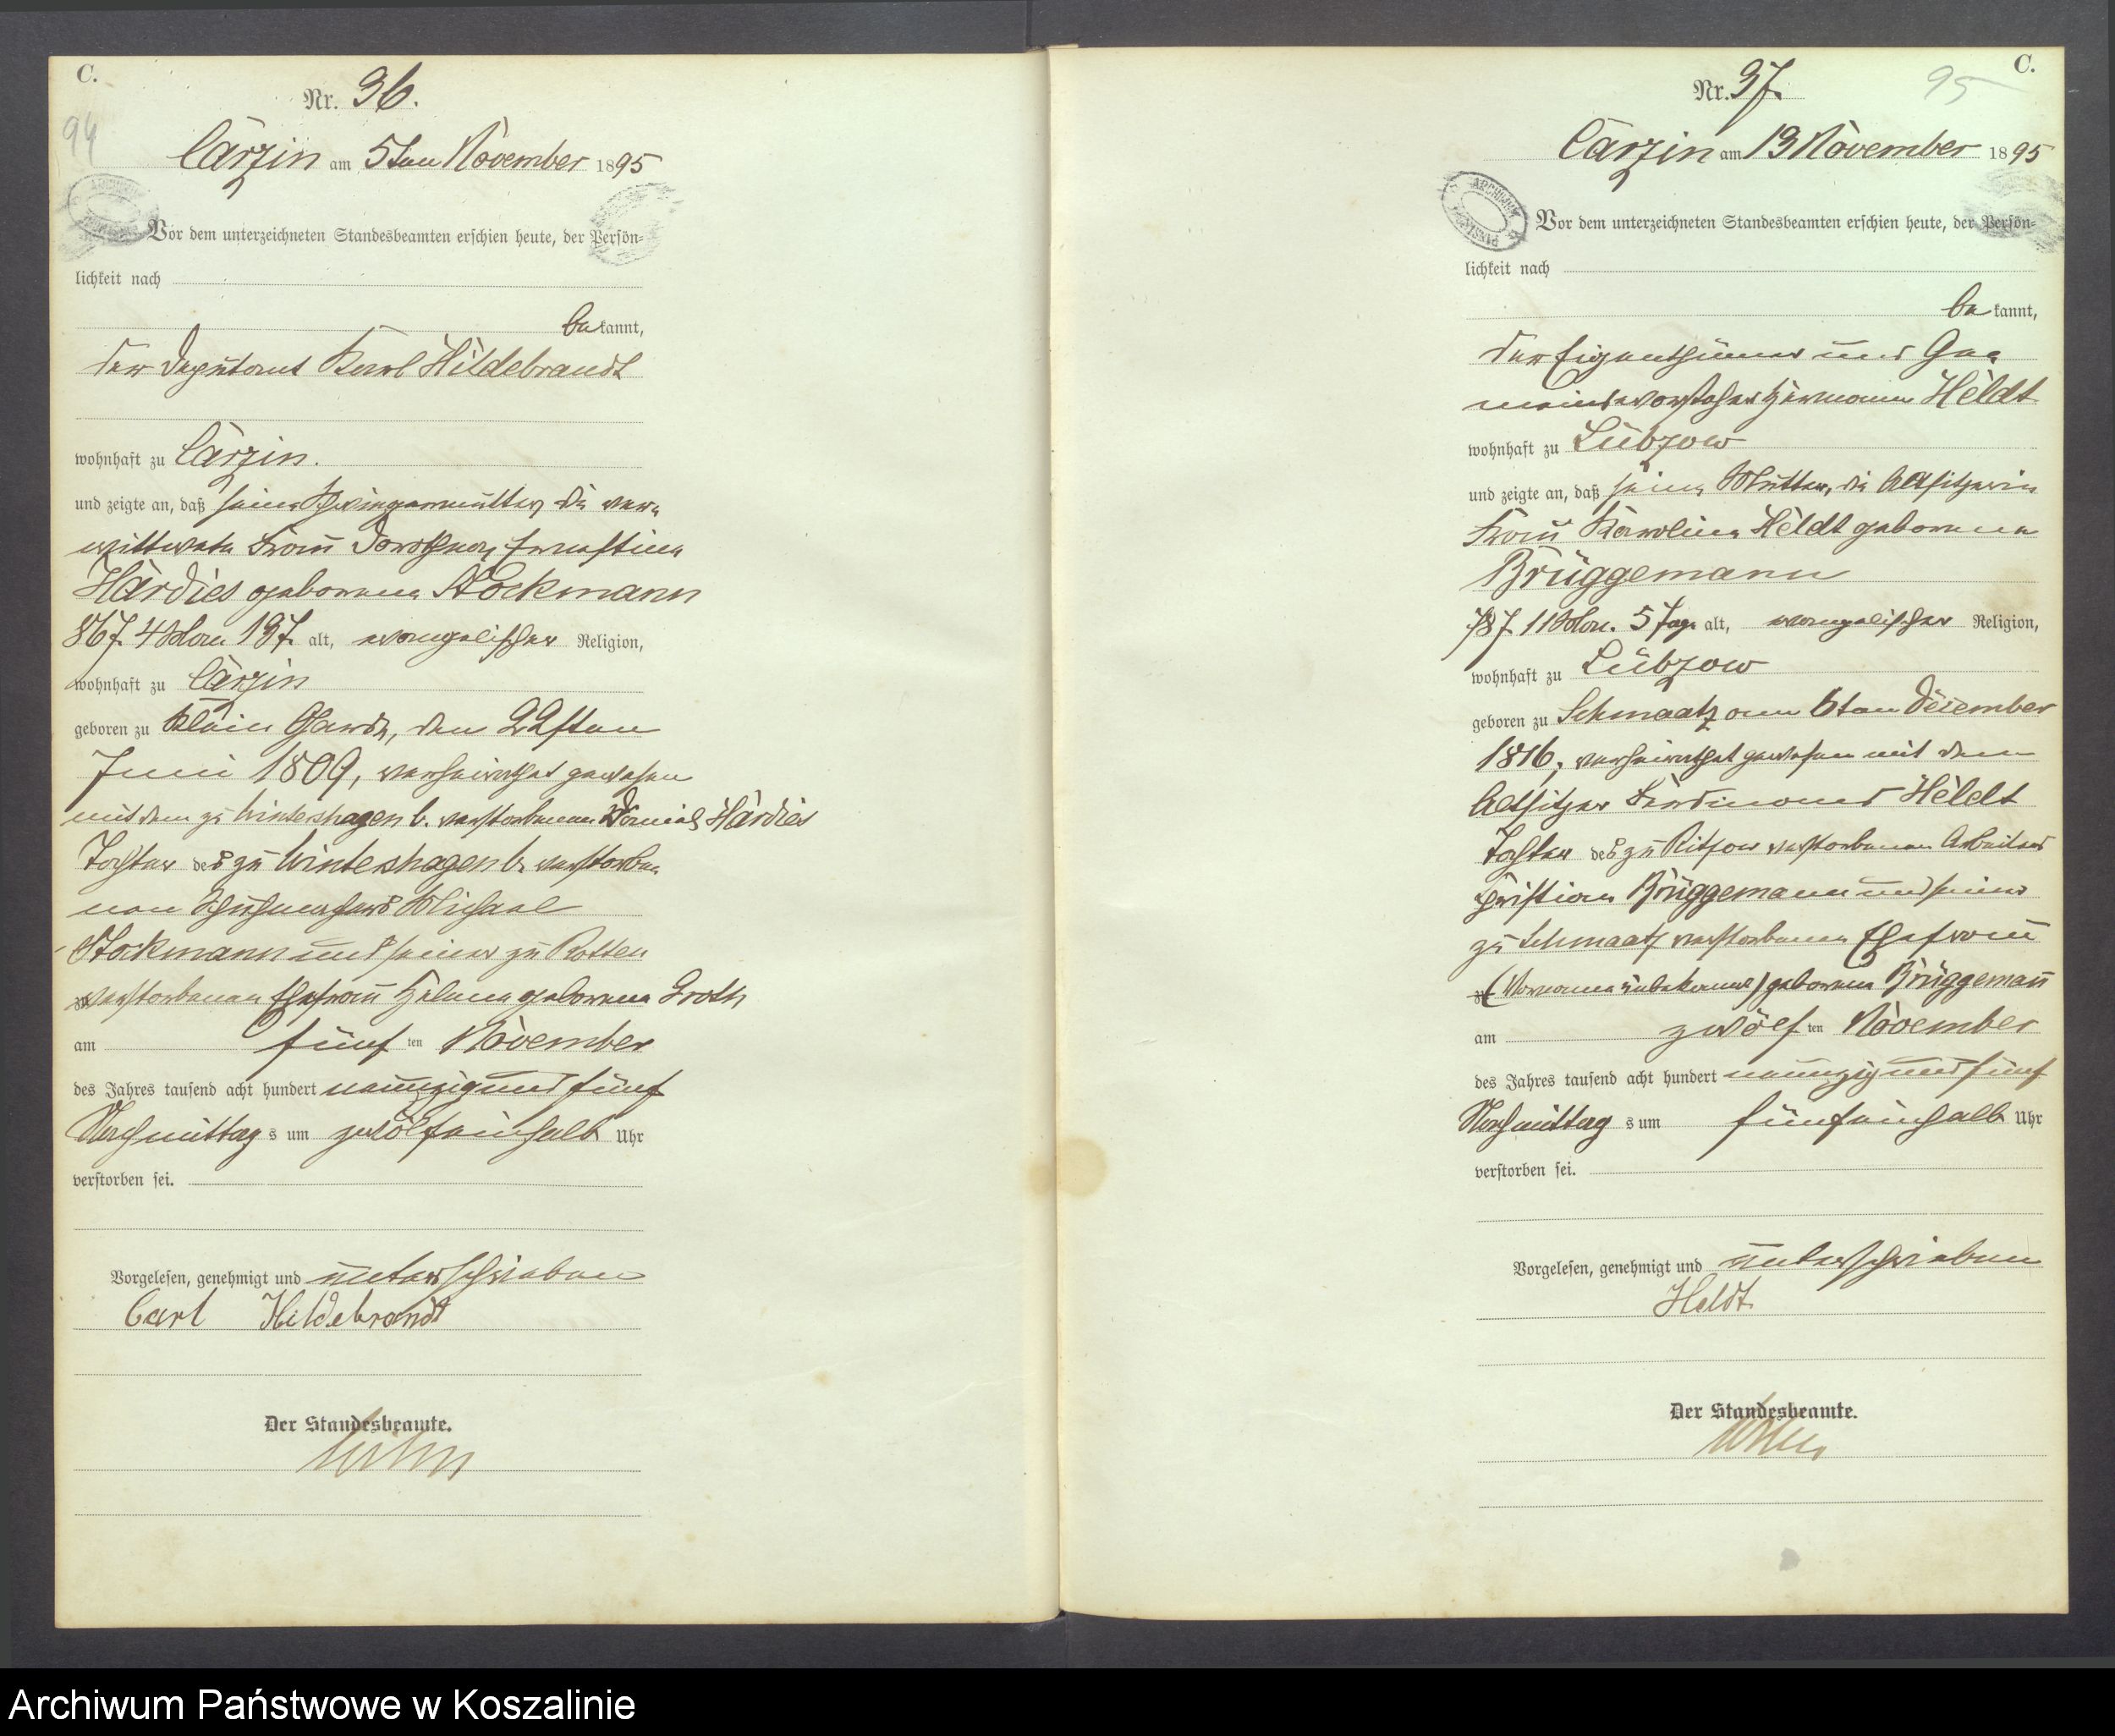 C.
94
Nr. 36.
Carzin am 5ten November 1895
Vor dem unterzeichneten Standesbeamten erschien heute, der Persön=
lichkeit nach
bekannt,
der Deputant Karl Hildebrandt
wohnhaft zu Carzin.
und zeigte an, daß seine Schwiegermutter, die ver=
wittwete Frau Dorothea, Ernestine
Hardies geborene Stockmann
86 J. 4 Mon. 13 T. alt, evangelischer Religion,
wohnhaft zu Carzin
geboren zu Klein Garde, den 22sten
Juni 1809, verheirathet gewesen
mit dem zu Wintershagen b. verstorbenen Daniel Hardies
Tochter des zu Wintershagen b. verstorbe=
nen Michael
Stockmann und seiner zu Rotten
verstorbenen Ehefrau Helene geborene Groth
am fünf ten November
des Jahres tausend acht hundert neunzig und fünf
Nachmittag s um zwölfeinhalb Uhr
verstorben sei.
Vorgelesen, genehmigt und unterschrieben
Carl Hildebrandt
Der Standesbeamte.
C.
95
Nr. 37.
Carzin am 13 November 1895
ARCHIWUM
Vor dem unterzeichneten Standesbeamten erschien heute, der Persön=
lichkeit nach
bekannt,
der Eigenthümer und Ge=
meindevorsteher Hermann Heldt
wohnhaft zu Lübzow
und zeigte an, daß seine Mutter, die Altsitzerin
Frau Karoline Heldt geborene
Brüggemann
78 J. 11 Mon. 5 Tage alt, evangelischer Religion,
wohnhaft zu Lübzow
geboren zu Schmaatz am 6ten Dezember
1816, verheirathet gewesen mit dem
Altsitzer Ferdinand Heldt
Tochter des zu Ritzow verstorbenen Arbeiters
Christian Brüggemann und seiner
zu Schmaatz verstorbenen Ehefrau
(Vorname unbekannt) geborene Brüggemann
am zwölf ten November
des Jahres tausend acht hundert neunzig und fünf
Nachmittag s um fünfeinhalb Uhr
verstorben sei.
Vorgelesen, genehmigt und unterschrieben
Heldt.
Der Standesbeamte.
Archiwum Państwowe w Koszalinie